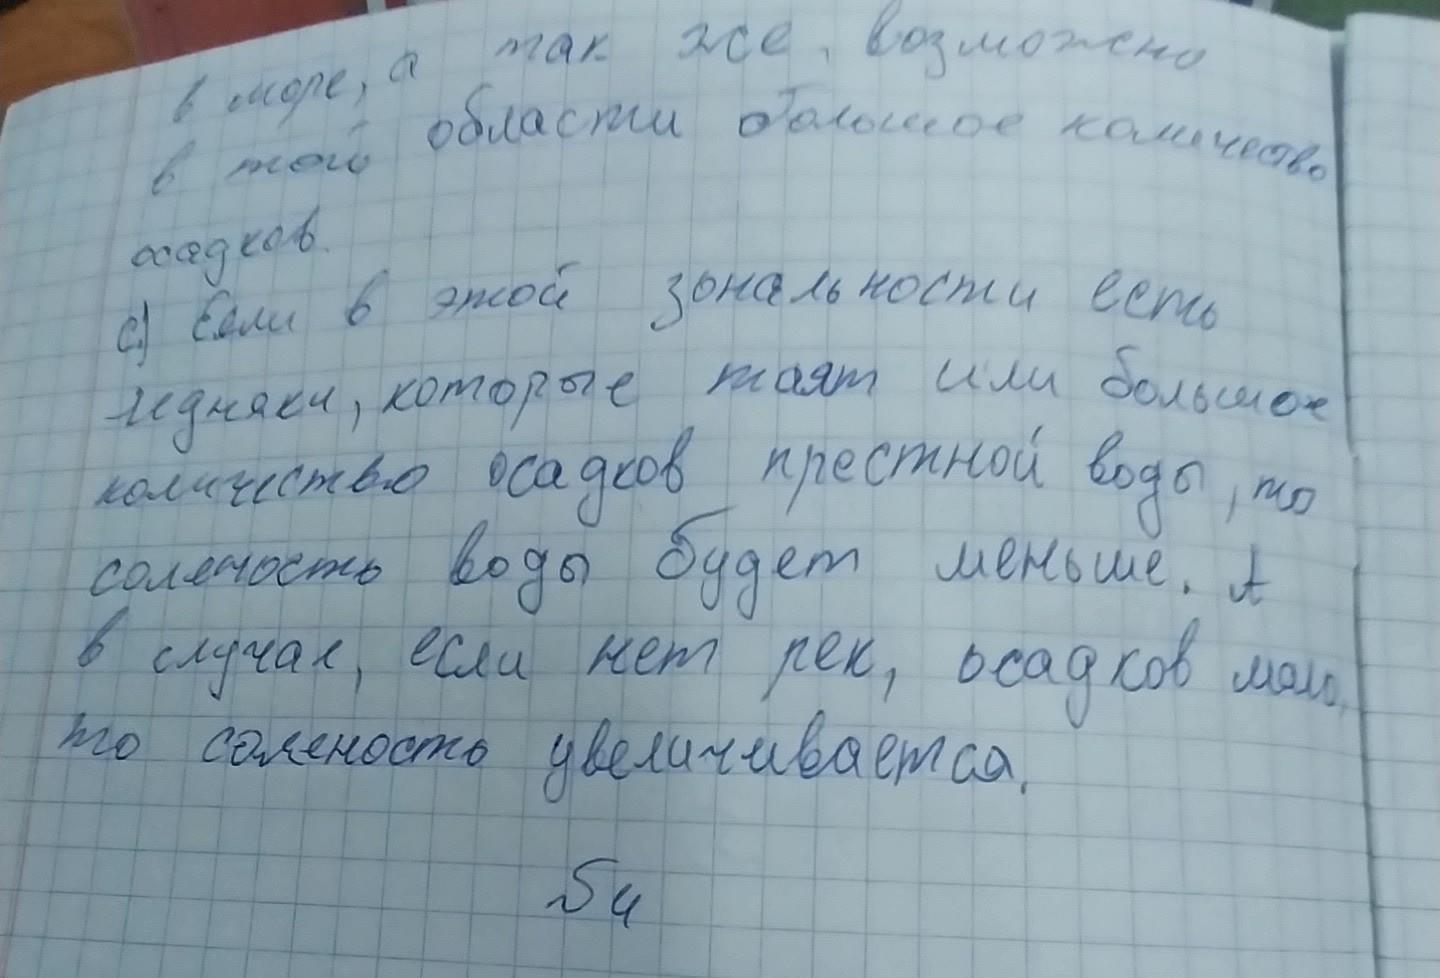 в море, а так же, возможно
в той области большое количество
осадков.
c) Если в этой зональности есть
ледняки, которые таят или большое
количество осадков престной воды, то
соленость воды будет меньше. А
в случае, если нет рек, осадков мало,
то соленость увеличивается.
№4